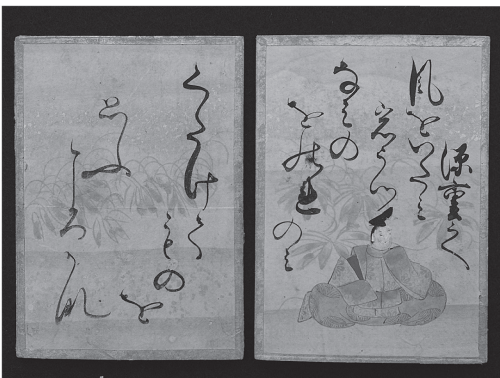 源重之
風をいたミ
岩うつ
なミの
をのれのミ
くたけて
ものを
思ふ
ころかな